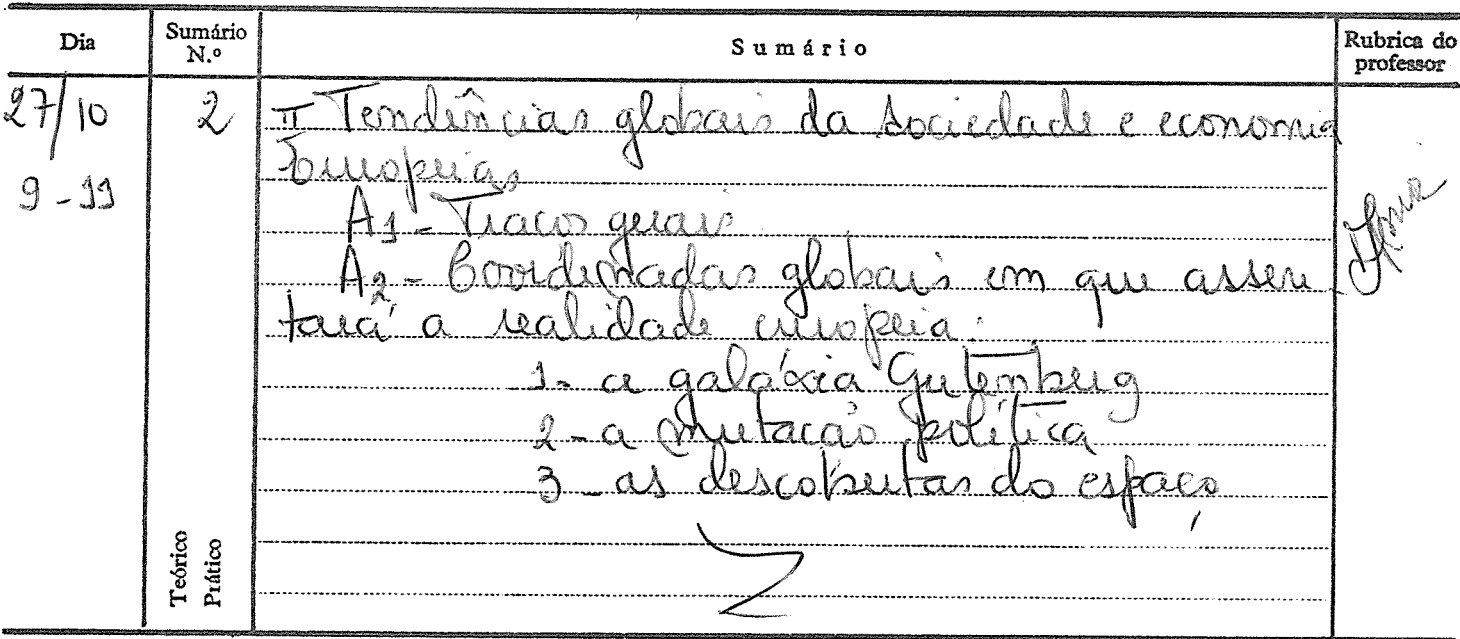 Dia
Sumário N.º
Sumário
Rubrica do professor
27/10
2
II Tendências globais da Sociedade e economia
Europeias
9-11
A1 - Traços gerais
A2 - Coordenadas globais em que assen
tará a realidade europeia:
1- a galáxia Gutenberg
2- a mutação política
3- as descobertas do espaço
Teórico
Prático